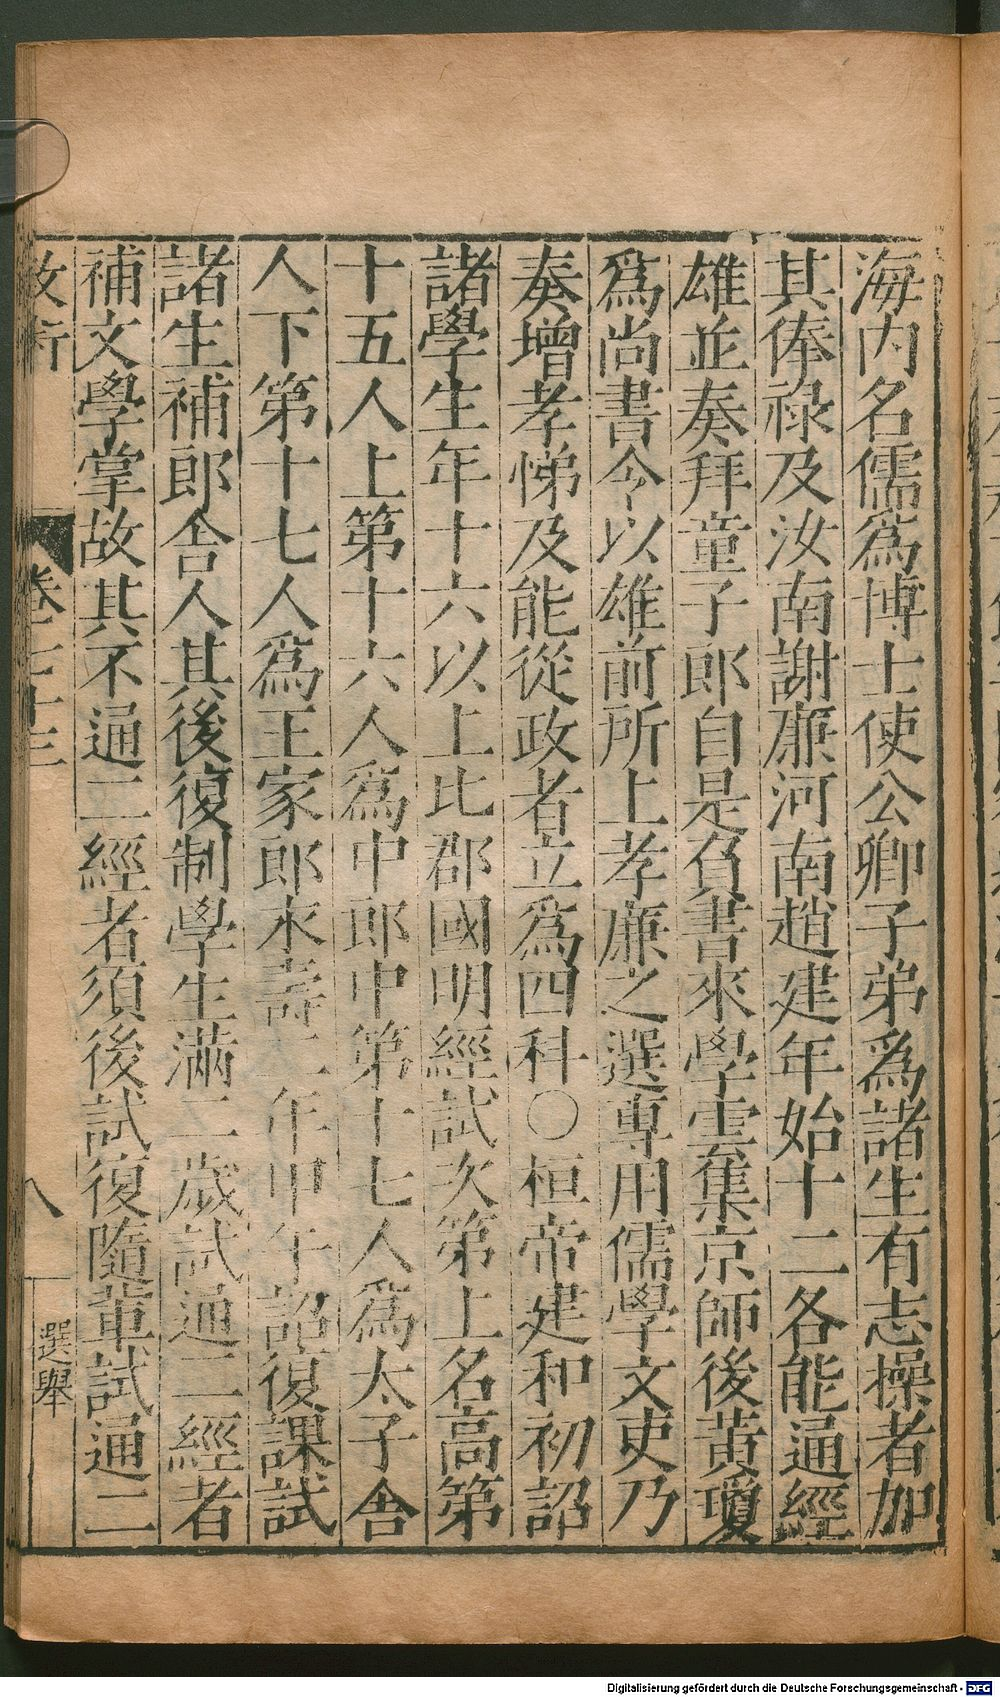 海内名儒爲博士使公卿子弟爲諸生有志操者加
其俸祿及汝南謝廉河南趙建年始十二各能通經
雄並奏拜童子郎自是負書來學雲集京師後黃瓊
爲尚書令以雄前所上孝廉之選專用儒學文吏乃
奏增孝悌及能從政者立爲四科○桓帝建和初詔
諸學生年十六以上比郡國明經試次第上名高第
十五人上第十六人爲中郎中第十七人爲太子舍
人下第十七人爲王家郎永壽二年甲午詔復課試
諸生補郎舍人其後復制學生滿二歲試通二經者
補文學掌故其不通二經者須後試復隨輩試通二
卷三十三
八
選舉
Digitalisierung gefördert durch die Deutsche Forschungsgemeinschaft - DFG